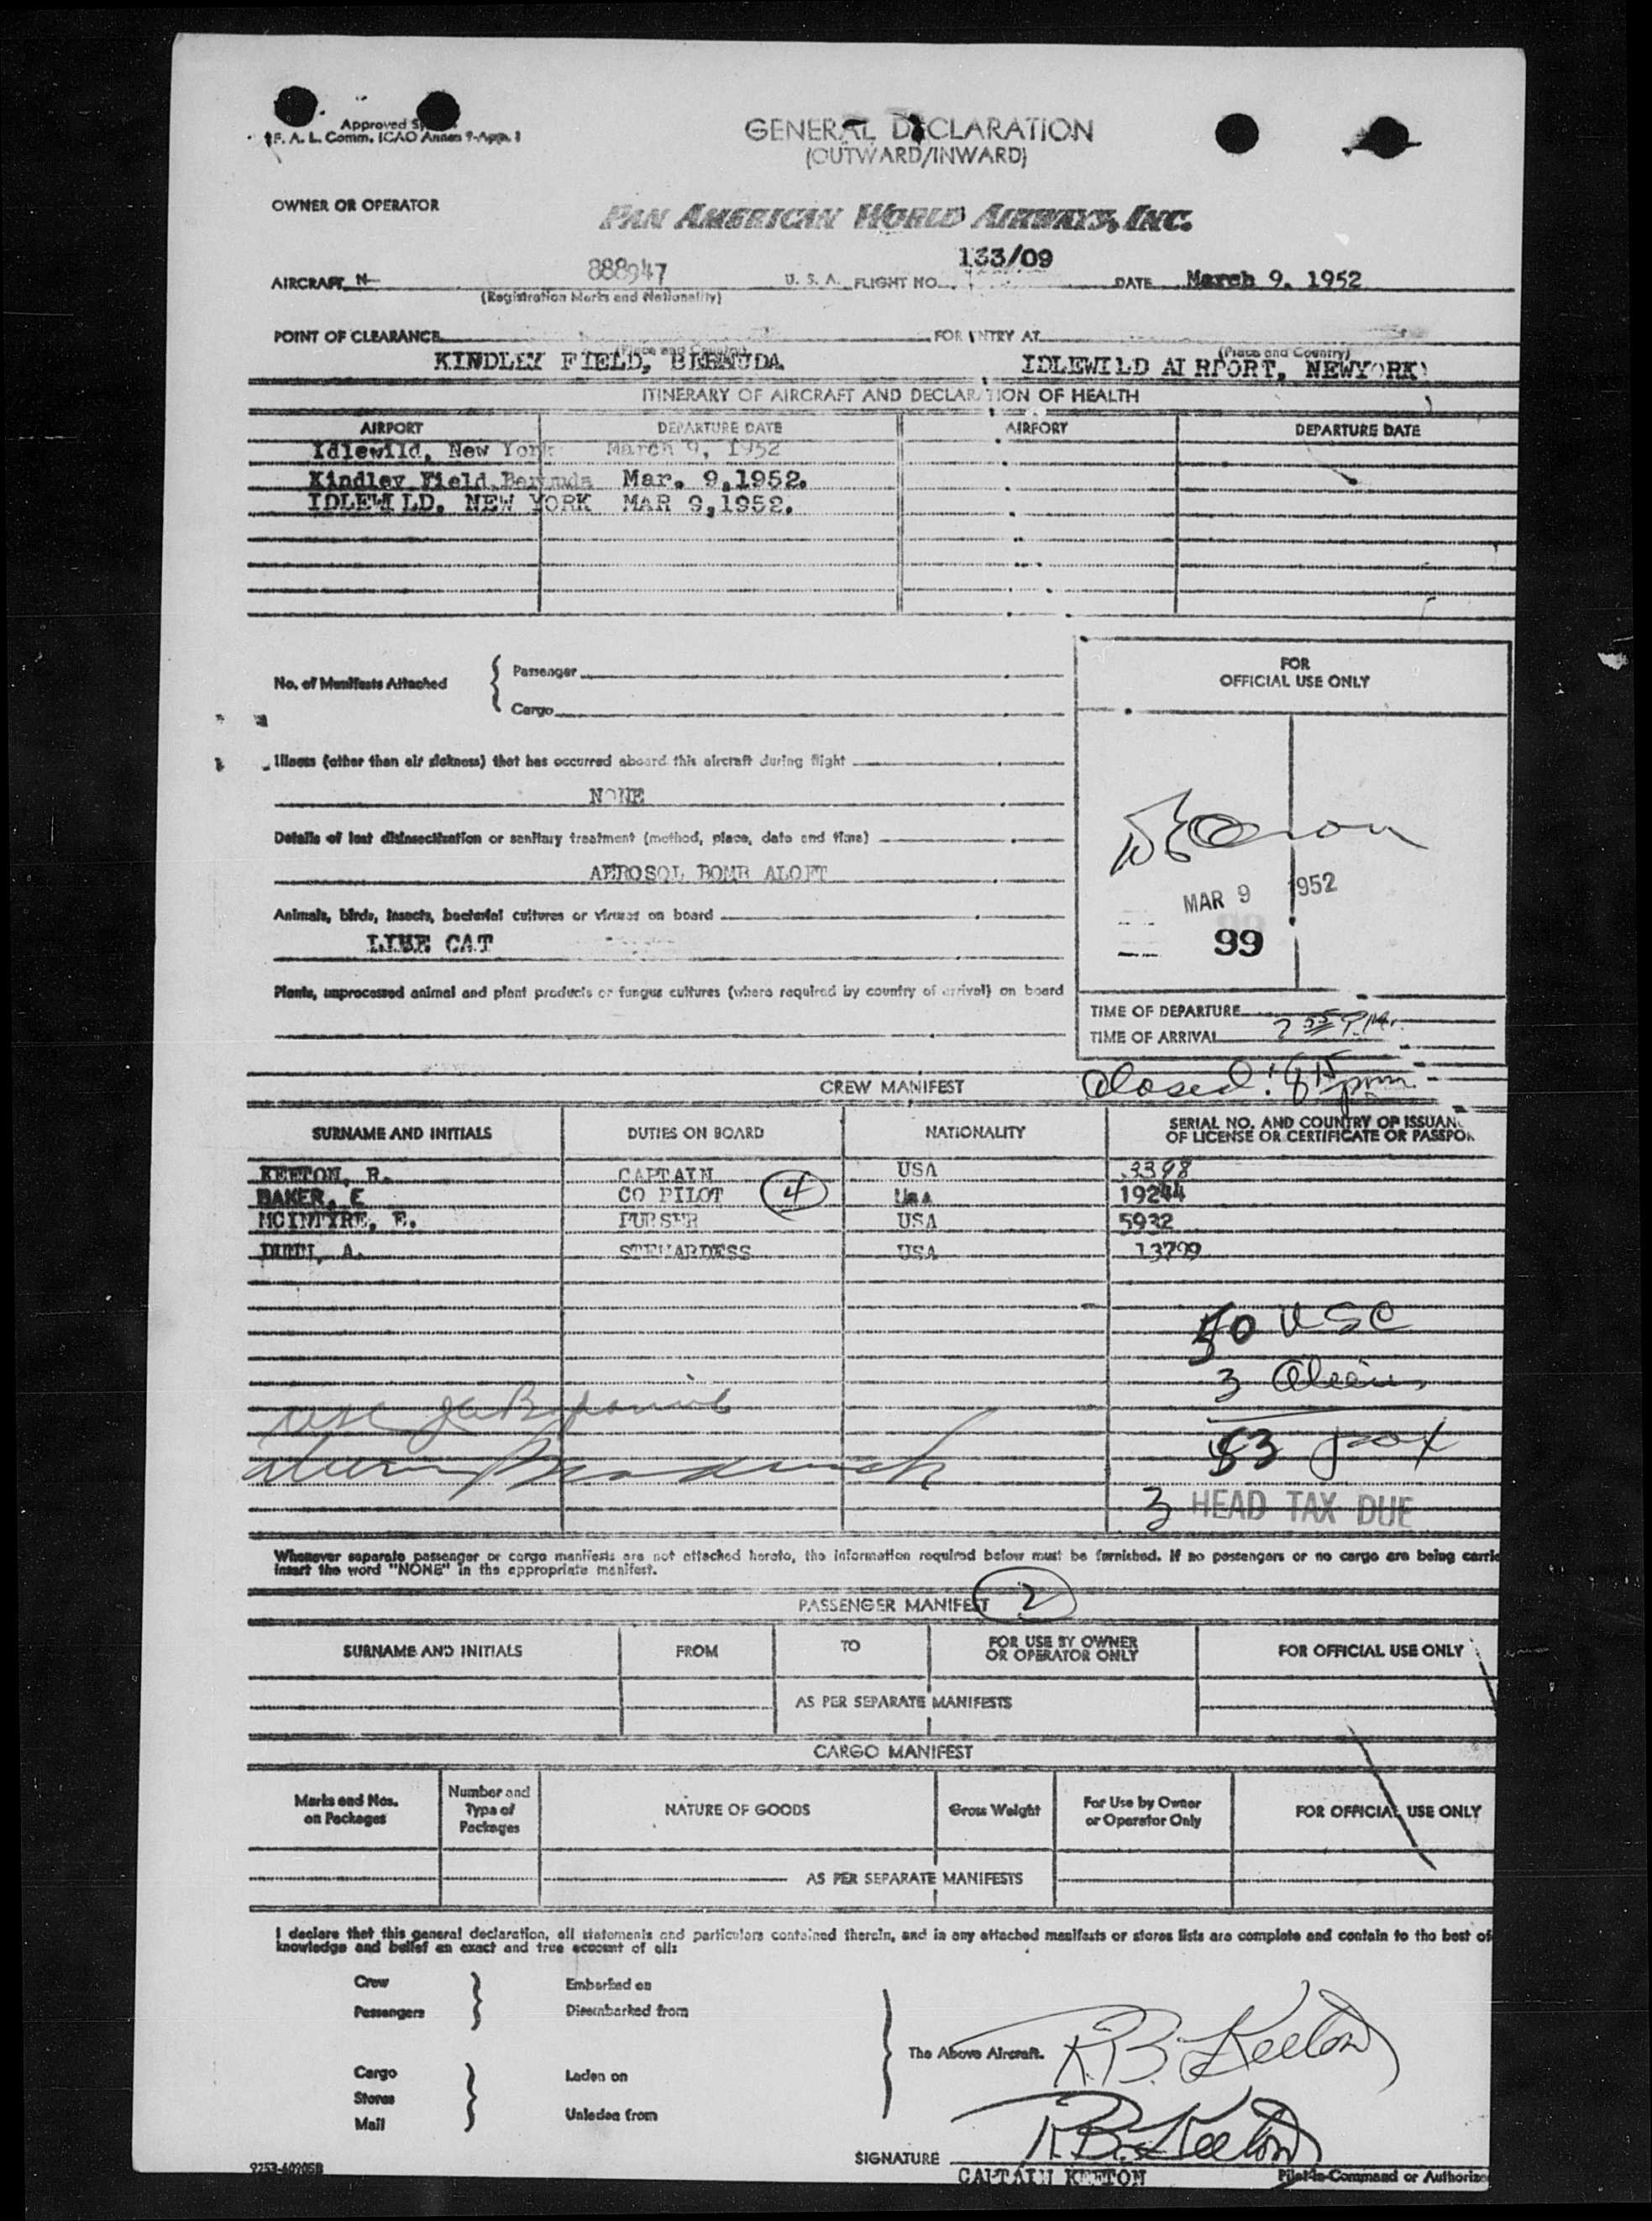 Approved
F. A. L. Comm. ICAO Annex 9-App. 1
GENERAL DECLARATION
(OUTWARD/INWARD)
OWNER OR OPERATOR
PAN AMERICAN WORLD AIRWAYS, INC.
AIRCRAFT N- 888947 U. S. A. FLIGHT NO. 133/09 DATE March 9. 1952
(Registration Marks and Nationality)
POINT OF CLEARANCE FOR ENTRY AT
(Place and Country) (Place and Country)
KINDLEY FIELD, BERMUDA IDLEWILD AIRPORT, NEWYORK
ITINERARY OF AIRCRAFT AND DECLARATION OF HEALTH
AIRPORT DEPARTURE DATE AIRPORT DEPARTURE DATE
Idlewild, New York March 9, 1952
Kindley Field, Bermuda Mar. 9,1952.
IDLEWILD. NEW YORK MAR 9,1952.
No. of Manifests Attached
Passenger
Cargo
FOR
OFFICIAL USE ONLY
Illness (other than air sickness) that has occurred aboard this aircraft during flight
NONE
Details of last disinsectization or sanitary treatment (method, place, date and time)
AEROSOL BOMB ALOFT
MAR 9 1952
99
Animals, birds, insects, bacterial cultures or viruses on board
LIVE CAT
Plants, unprocessed animal and plant products or fungus cultures (where required by country of arrival) on board
TIME OF DEPARTURE
TIME OF ARRIVAL 7 55 P.M.
CREW MANIFEST
Closed: 8 15 pm
SURNAME AND INITIALS DUTIES ON BOARD NATIONALITY SERIAL NO. AND COUNTRY OF ISSUAN
OF LICENSE OR CERTIFICATE OR PASSPO
KEETON, R. CAPTAIN USA 3398
BAKER, E CO PILOT 4 USA 19244
MCINTYRE, E. PURSER USA 5932
DUNN, A. STEWARDESS USA 13799
50 USC
3 Aliens
53 pax
3 HEAD TAX DUE
Whenever separate passenger or cargo manifests are not attached hereto, the information required below must be furnished. If no passengers or no cargo are being carrie
insert the word "NONE" in the appropriate manifest.
PASSENGER MANIFEST 2
SURNAME AND INITIALS FROM TO FOR USE BY OWNER
OR OPERATOR ONLY FOR OFFICIAL USE ONLY
AS PER SEPARATE MANIFESTS
CARGO MANIFEST
Marks and Nos.
on Packages Number and
Type of
Packages NATURE OF GOODS Gross Weight For Use by Owner
or Operator Only FOR OFFICIAL USE ONLY
AS PER SEPARATE MANIFESTS
I declare that this general declaration, all statements and particulars contained therein, and in any attached manifests or stores lists are complete and contain to the best of
knowledge and belief an exact and true account of all:
Crew Embarked on
Passengers Disembarked from
The Above Aircraft. R.B. Keeton
Cargo Laden on
Stores
Mail Unladen from
SIGNATURE R.B. Keeton
CAPTAIN KEETON Pilot-in-Command or Authorize
9253-60905B